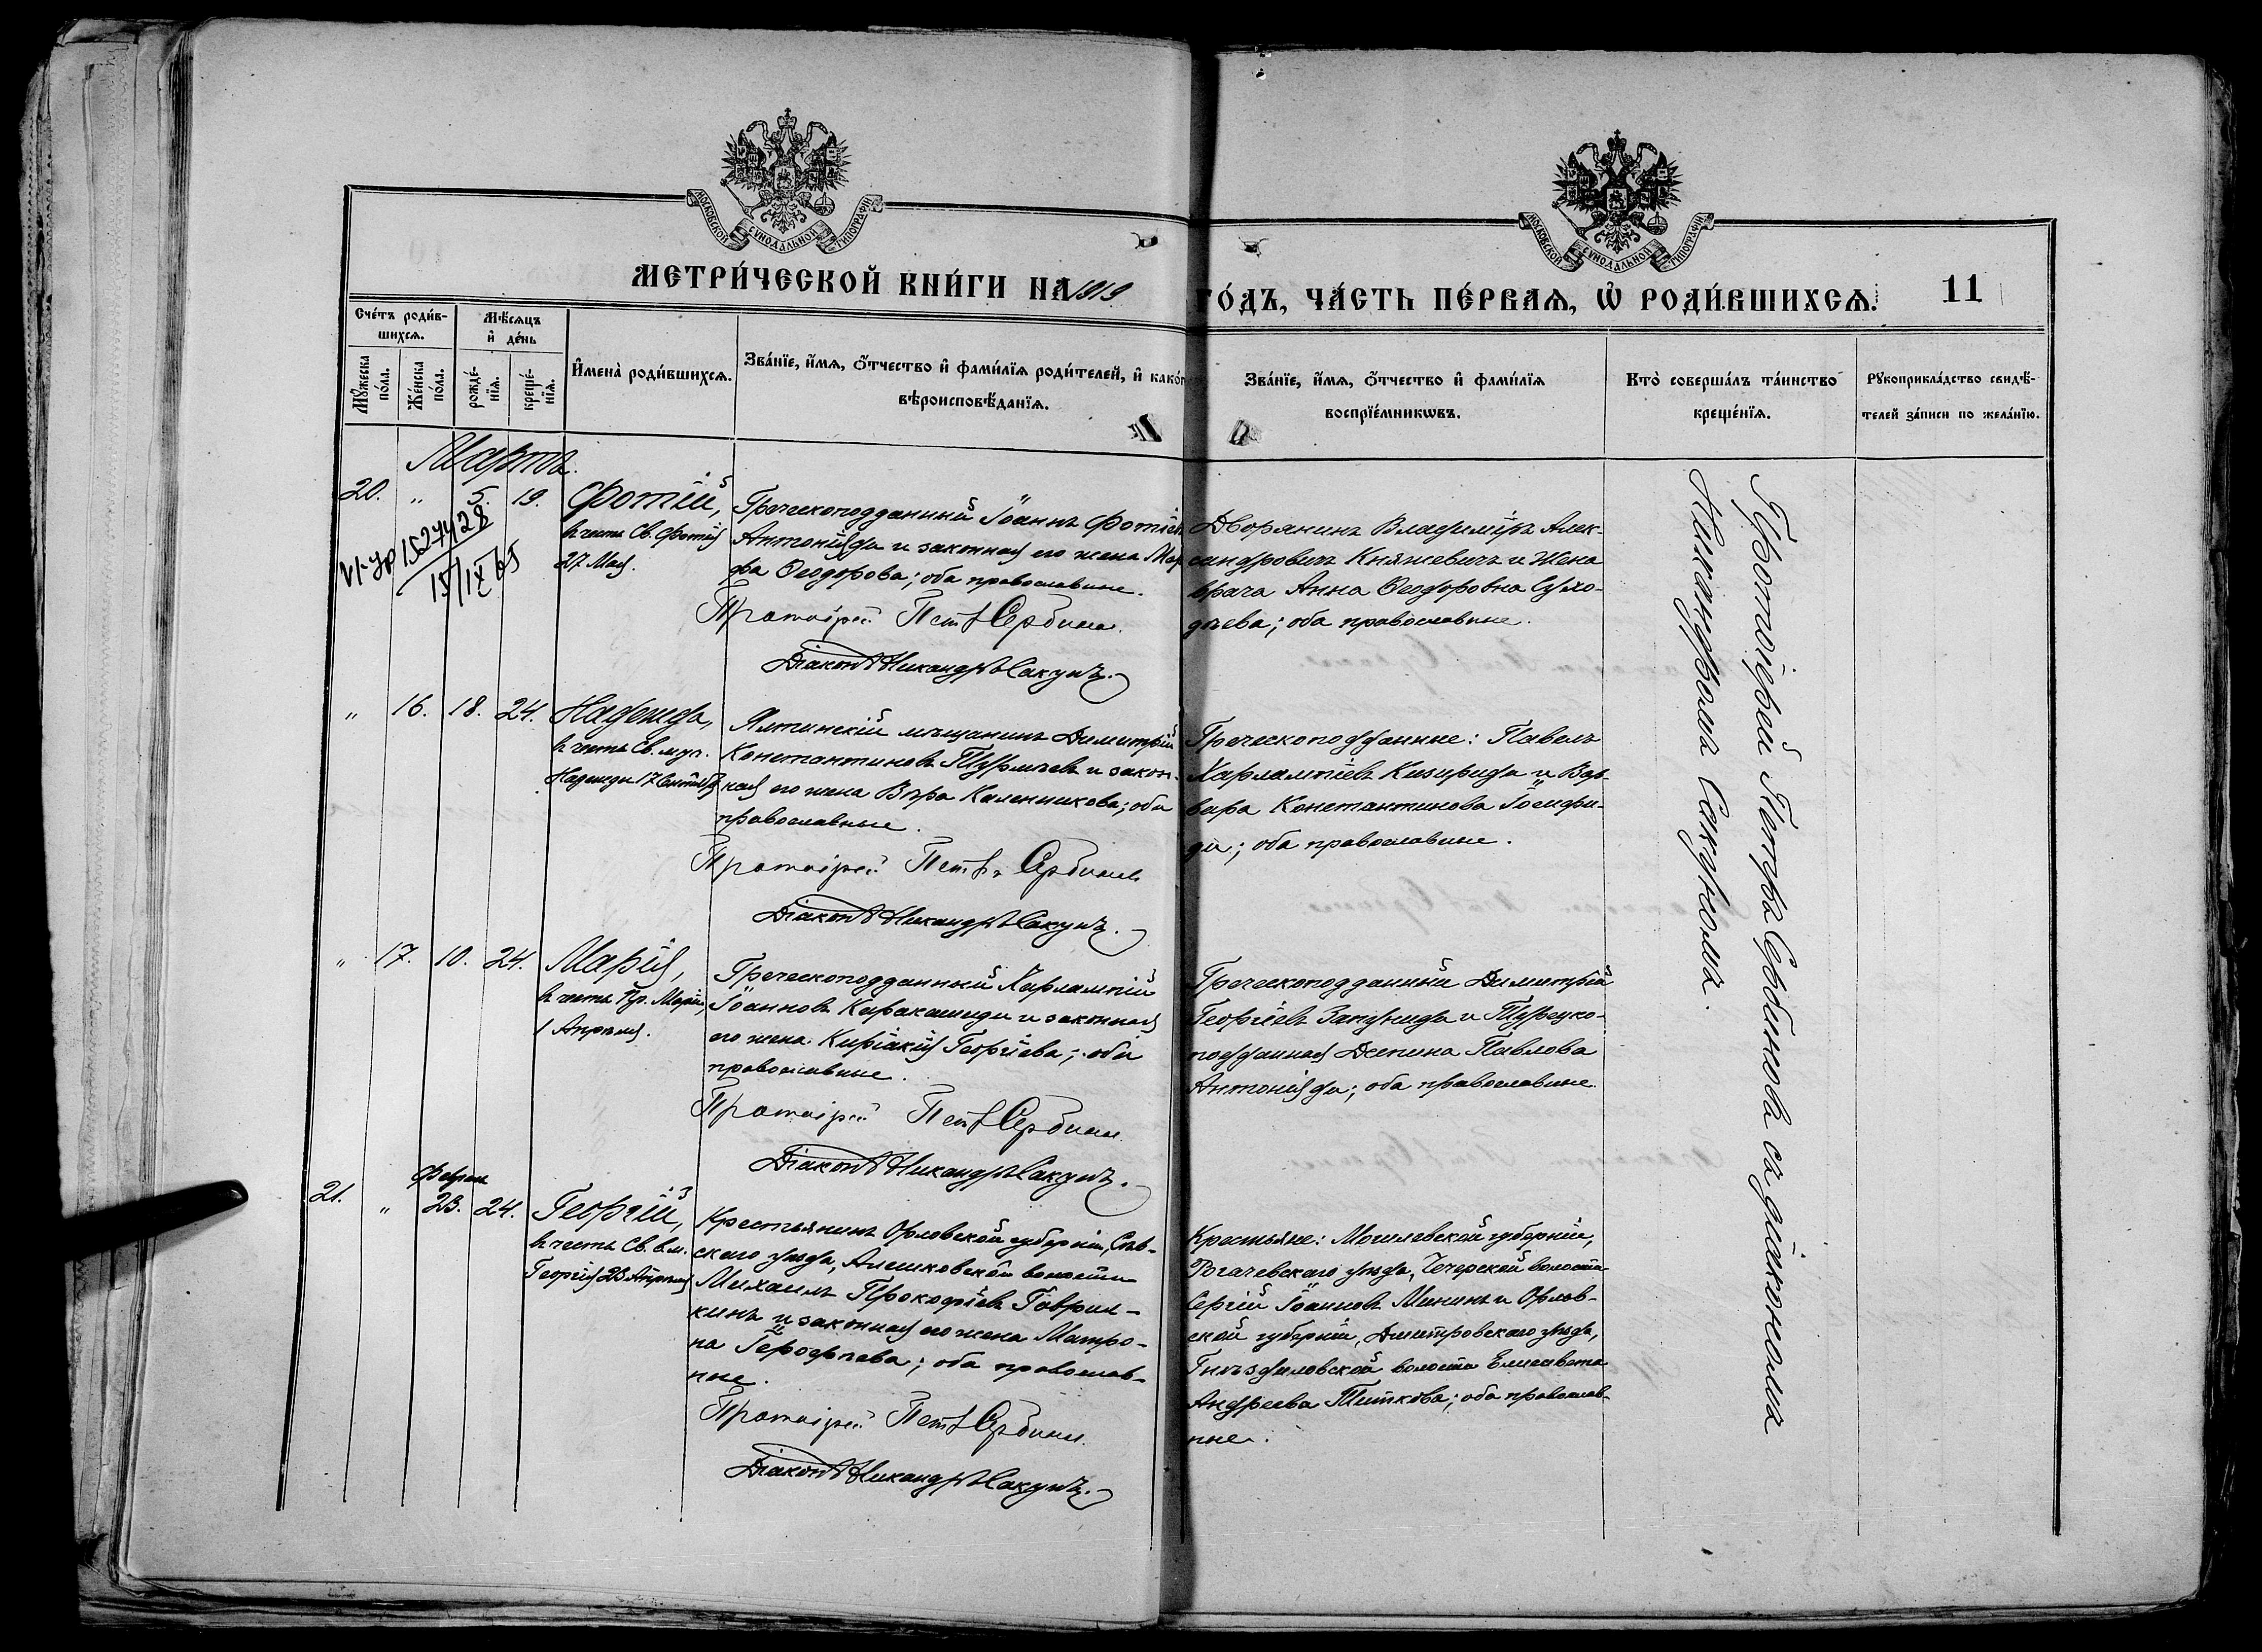 МОСКОВСКОЙ СѴНОДАЛЬНОЙ ТИПОГРАФІИ
МОСКОВСКОЙ СѴНОДАЛЬНОЙ ТИПОГРАФІИ
МЕТРИ́ЧЕСКОЙ КНИ́ГИ НА 1919
ГО́ДЪ, ЧА́СТЬ ПЕ́РВАѦ, Ѡ҆ РОДИ́ВШИХСѦ.
11
Сче́тъ роди́в-
шихсѧ.
Мѣ́сѧцъ
и҆ де́нь
Мꙋ́жеска
по́ла.
Же́нска
по́ла.
рожде́-
нїѧ.
креще́-
нїѧ.
И҆мена̀ роди́вшихсѧ.
Зва́нїе, и҆́мѧ, ѻ҆́тчество и҆ фами́лїѧ роди́телей, и҆ како́г
вѣроисповѣ́данїѧ.
Зва́нїе, и҆́мѧ, ѻ҆́тчество и҆ фами́лїѧ
воспрїе́мникѡвъ.
Кто̀ соверша́лъ та́инство
креще́нїѧ.
Рꙋкоприкла́дство свидѣ́-
телей за́писи по жела́нїю.
Мартъ.
20. " 5. 19. Фотій,
въ честь Св. Фотія
27 Мая.
1527428
15/IX 65
Греческоподданный Іоаннъ Фотіевъ
Антоніяди и законная его жена Мар
фа Ѳеодорова; оба православные.
Протоіерей Петръ Сербиновъ
Діаконъ Никандръ Сакунъ.
Дворянинъ Владиміръ Алек-
сандровичъ Княжевичъ и жена
врача Анна Ѳеодоровна Сухо-
дѣева; оба православные.
" 16. 18. 24. Надежда,
въ честь Св. муч.
Надежды 17 Сентября
Ялтинскій мѣщанинъ Димитрій
Константиновъ и закон-
ная его жена Вѣра Каленникова; оба
православные.
Протоіерей Петръ Сербиновъ
Діаконъ Никандръ Сакунъ.
Греческоподданные: Павелъ
Харлампіевъ и Вар-
вара Константинова Іосифи-
ди; оба православные.
" 17. 10. 24. Марія,
въ честь Пр. Маріи,
1 Апрѣля.
Греческоподданный Харлампій
Іоанновъ Каракашиди и законная
его жена Киріакія Георгіева; оба
православные.
Протоіерей Петръ Сербиновъ
Діаконъ Никандръ Сакунъ.
Греческоподданный Димитрій
Георгіевъ и Турецко-
подданная Деспина Павлова
Антоніяди; оба православные.
Феврал
21. " 23. 24. Георгій,
въ честь Св. вм.
Георгія 23 Апрѣля
Крестьянинъ Орловской губерніи, Сѣв-
скаго уѣзда, Алешковской волости
Михаилъ Прокофіевъ Гаврил-
кинъ и законная его жена Матро-
на Іерофеева; оба православ-
ные.
Протоіерей Петръ Сербиновъ
Діаконъ Никандръ Сакунъ.
Крестьяне: Могилевской губерніи,
Рогачевскаго уѣзда, Чечерской волости
Сергій Іоанновъ Мининъ и Орлов-
ской губерніи, Дмитровскаго уѣзда,
Гнѣздиловской волости Елисавета
Андреева Титкова; оба православ-
ные.
Протоіерей Петръ Сербиновъ съ діакономъ
Никандромъ Сакуномъ.